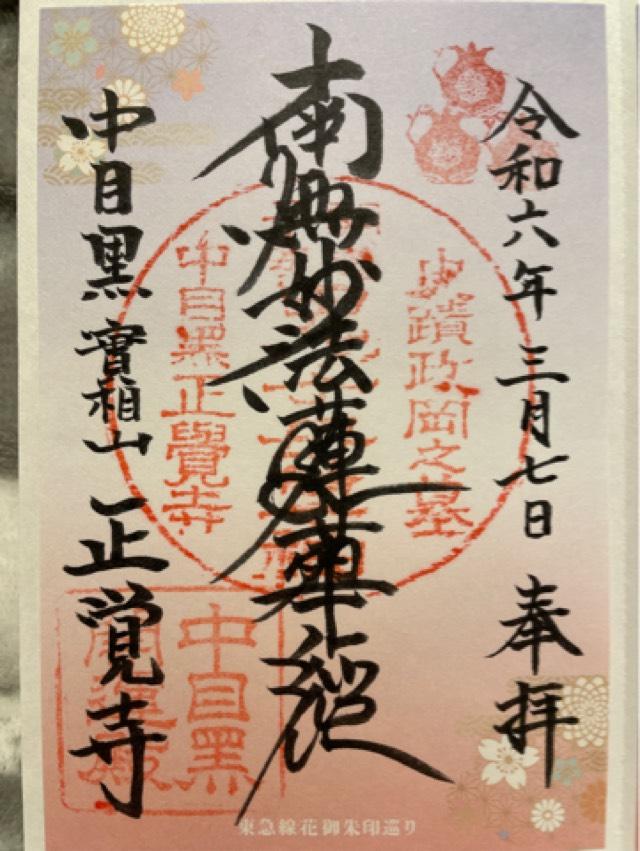 令和六年三月七日 奉拝
南無妙法蓮華経
中目黒 實相山 正覚寺
史蹟政岡之墓
中目黒正覺寺
中目黒
東急線花御朱印巡り